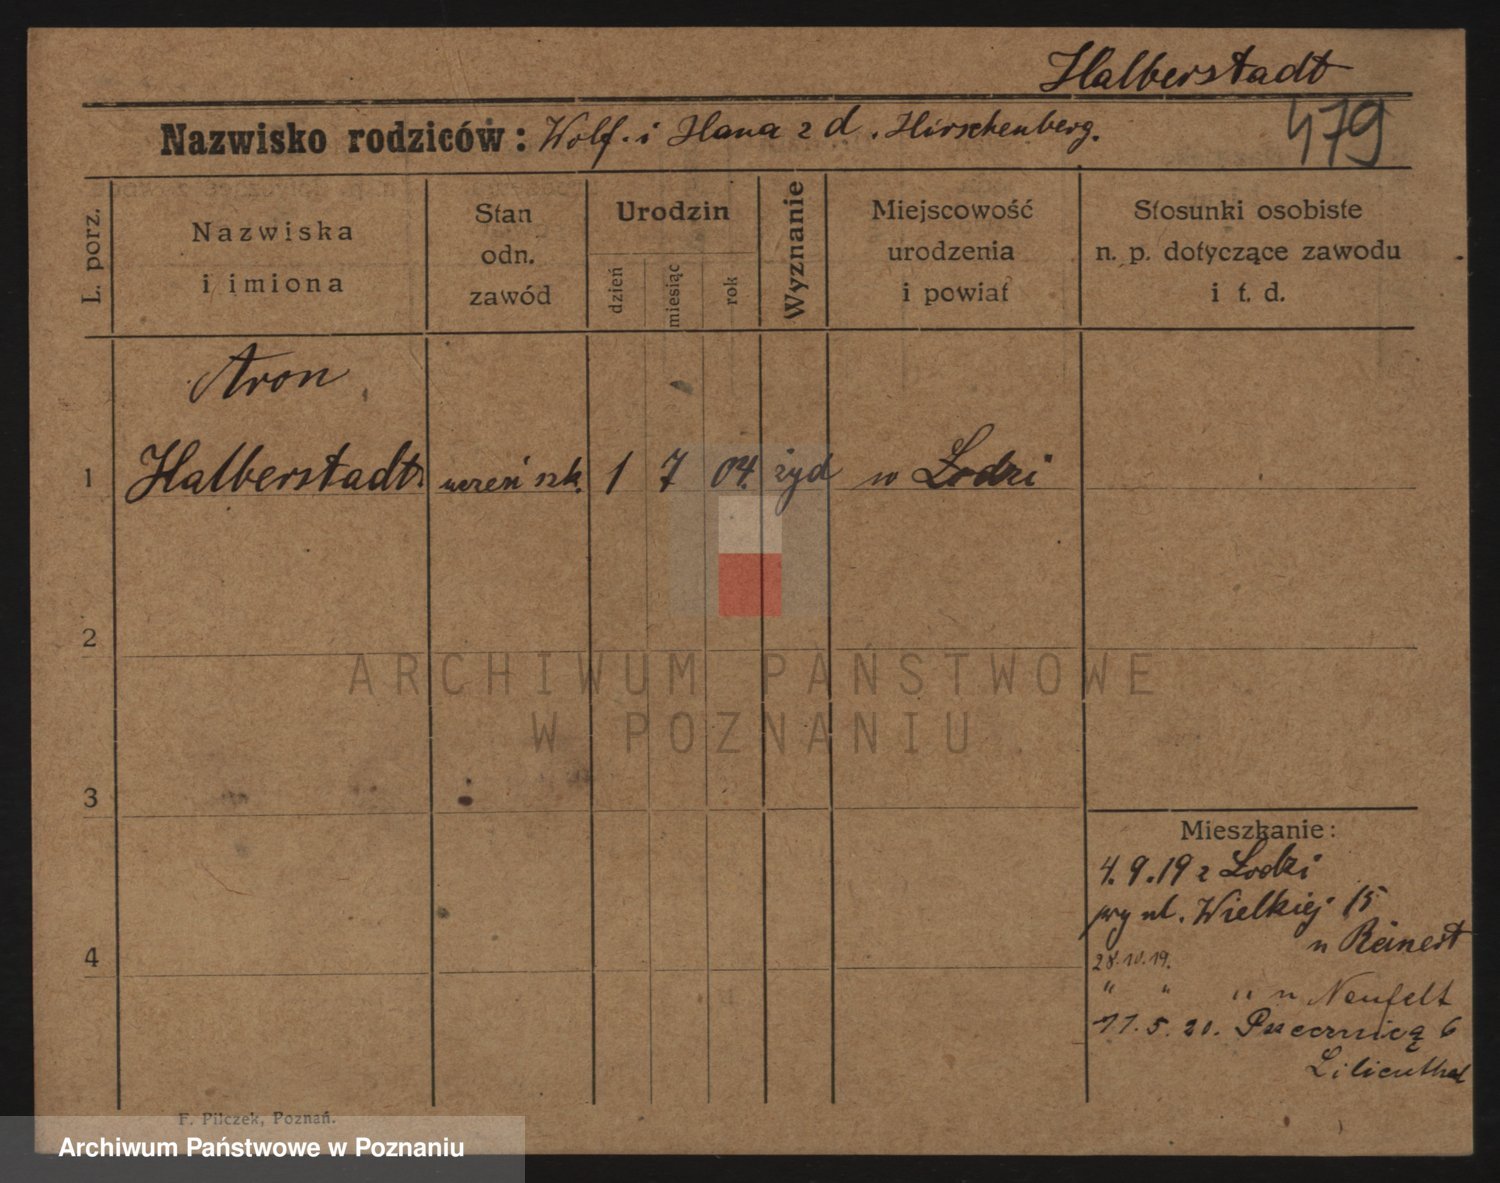 Halberstadt
479
Nazwisko rodziców: Wolf. i Hana z d. Hirschenberg.
L. porz.
Nazwiska
i imiona
Stan
odn.
zawód
Urodzin
dzień
miesiąc
rok
Wyznanie
Miejscowość
urodzenia
i powiat
Stosunki osobiste
n. p. dotyczące zawodu
i t. d.
Aron
1 Halberstadt uczeń szk. 1 7 04. żyd w Lodzi
2
ARCHIWUM PAŃSTWOWE
W POZNANIU
3
Mieszkanie:
4.9.19 z Lodzi
przy ul. Wielkiej 15
u Reinert
4
28.10.19.
" " " u Neufelt
11.5.20. 6
Lilienthal
F. Pilczek, Poznań.
Archiwum Państwowe w Poznaniu